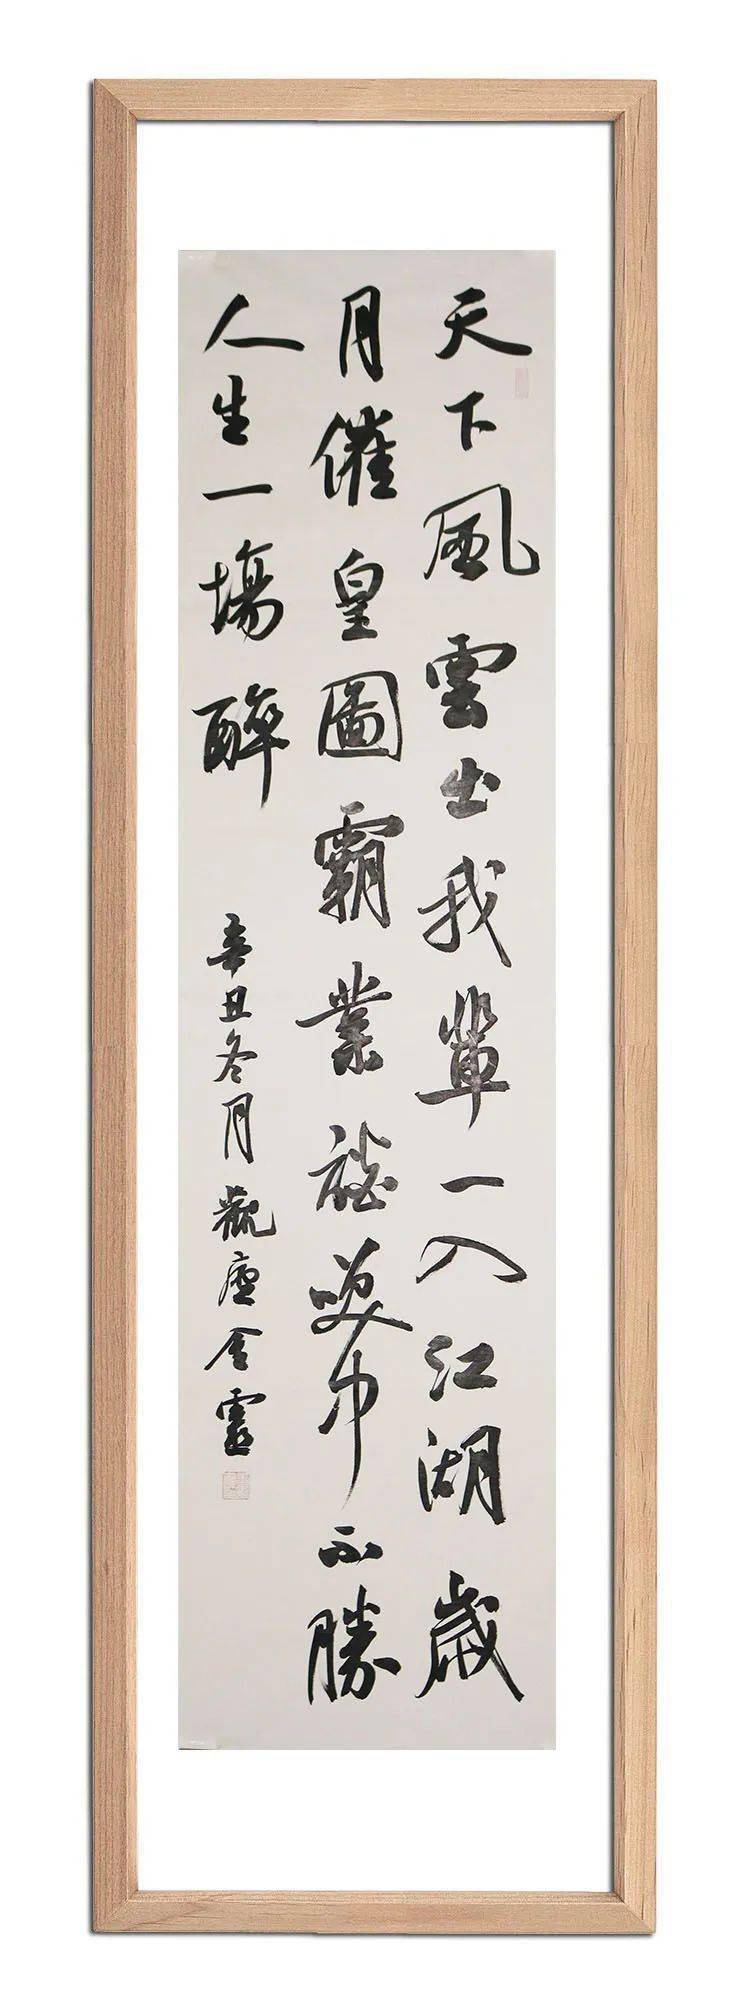 天下風雲出我輩一入江湖歲
月催皇圖霸業談笑中不勝
人生一場醉
辛丑冬月觀廬金靈